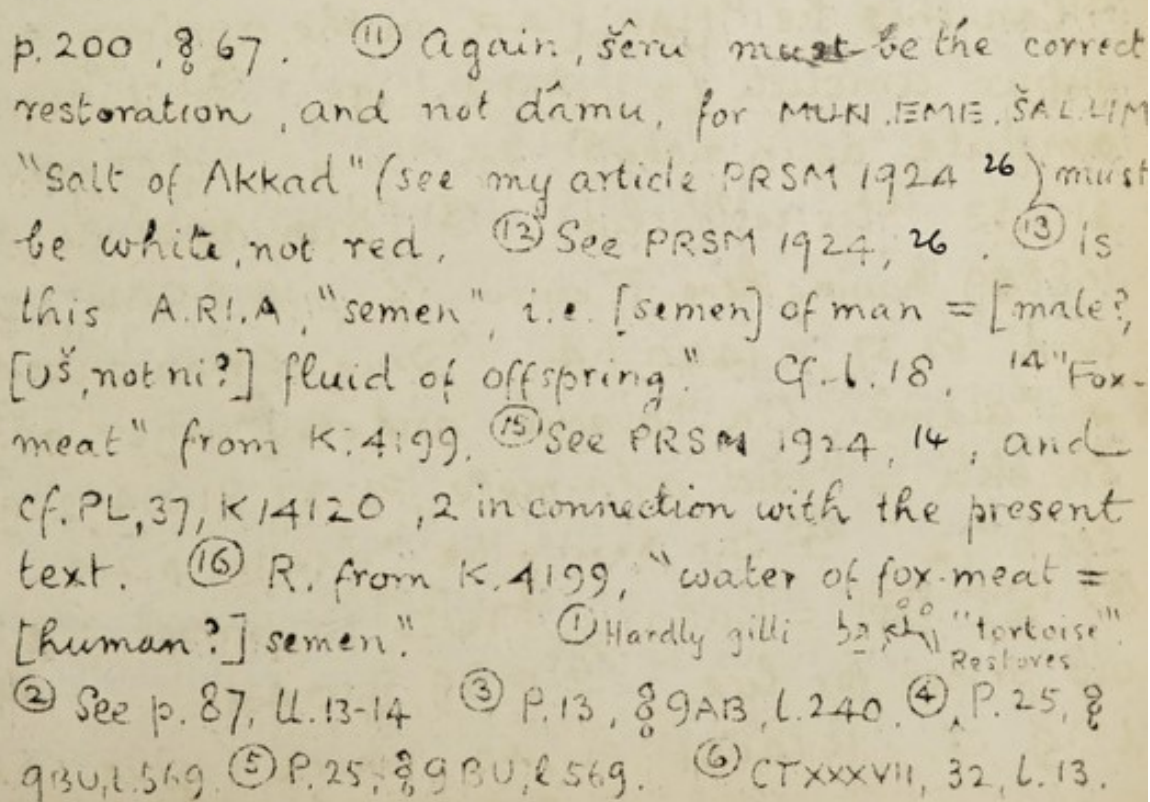 p. 200, § 67. ⑪ Again, šêru must be the correct
restoration, and not dâmu, for MUN.EME.ŠAL.LIM
"Salt of Akkad" (see my article PRSM 1924 26) must
be white, not red. ⑫ See PRSM 1924, 26. ⑬ Is
this A.RI.A, "semen", i.e. [semen] of man = [male?,
[UŠ, not ni?] fluid of offspring." Cf. l. 18. 14 "Fox-
meat" from K.4199. ⑮ See PRSM 1924, 14, and
cf. PL, 37, K 14120, 2 in connection with the present
text. ⑯ R. from K.4199, "water of fox-meat =
[human?] semen." ① Hardly gilli "tortoise".
② See p. 87, ll. 13-14 ③ P. 13, § 9AB, l. 240. ④ Restores P. 25, §
9BU, l. 569. ⑤ P. 25, § 9BU, l 569. ⑥ CT XXXVII, 32, l. 13.